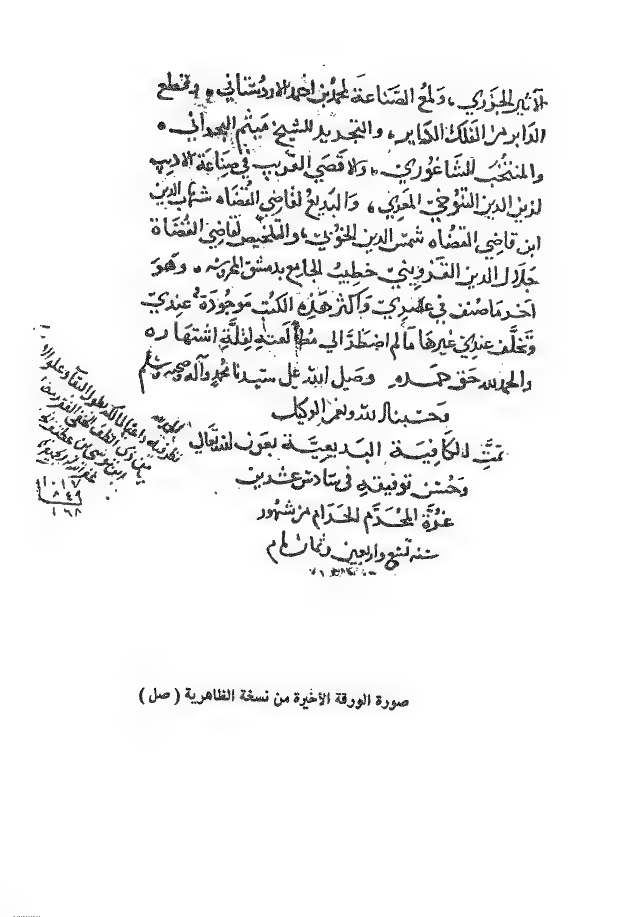 الاثير الجزري، ولمع الصناعة لمحمد بن احمد الاردستاني، وقطع
الدابر من الفلك الداير، والتجديد للشيخ ميثم البحراني
والمنتخب للشاغوري، والاقصي القريب في صناعة الاديب
لزين الدين التنوخي المعري، والبديع لقاضي القضاه شهاب الدين
ابن قاضي القضاه شمس الدين الخوئي، والتلخيص لقاضي القضاة
جلال الدين القزويني خطيب الجامع بدمشق المحروسه، وهو
اخر ما صنف في عصري واكثر هذه الكتب موجودة عندي
وتخلف عندي غيرها ما لم اضطر الي مطالعته لقلة اشتهاره
والحمد لله حق حمده وصلي الله علي سيدنا محمد وآله وصحبه وسلم
وحسبنا الله ونعم الوكيل
تمت الكافية البديعية بعون الله تعالي
وحسن توفيقه في سادس عشرين
غرة المحرم الحرام من شهور
سنه تسع واربعين وثمان
الحمد لله
١٠١٧
٨٤٩
١٦٨
صورة الورقة الأخيرة من نسخة الظاهرية ( صل )